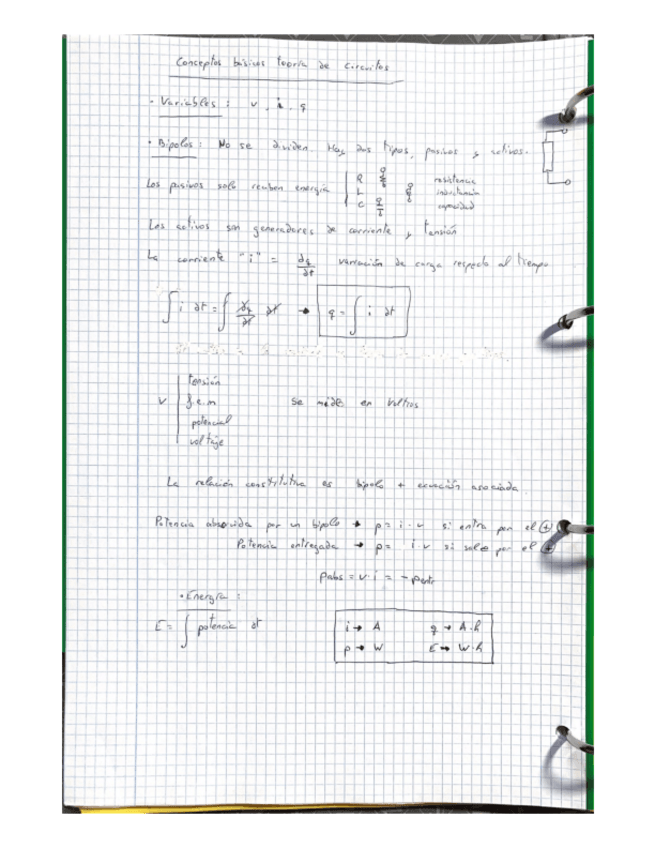 Conceptos básicos teoría de circuitos
• Variables : v, i, q
• Bipolos : No se dividen. Hay dos tipos, pasivos y activos.
Los pasivos solo reciben energía
R resistencia
L inductancia
C capacidad
Los activos son generadores de corriente y tensión
La corriente "i" = dq/dt variación de carga respecto al tiempo
∫ i dt = ∫ dq/dt dt → q = ∫ i dt
v
tensión
f.e.m
potencial
voltaje
Se mide en Voltios
La relación constitutiva es bipolo + ecuación asociada
Potencia absorvida por un bipolo → p = i · v si entra por el (+)
Potencia entregada → p = i · v si sale por el (+)
pabs = v · i = - pentr
• Energía :
E = ∫ potencia dt
i → A q → A·h
p → W E → W·h